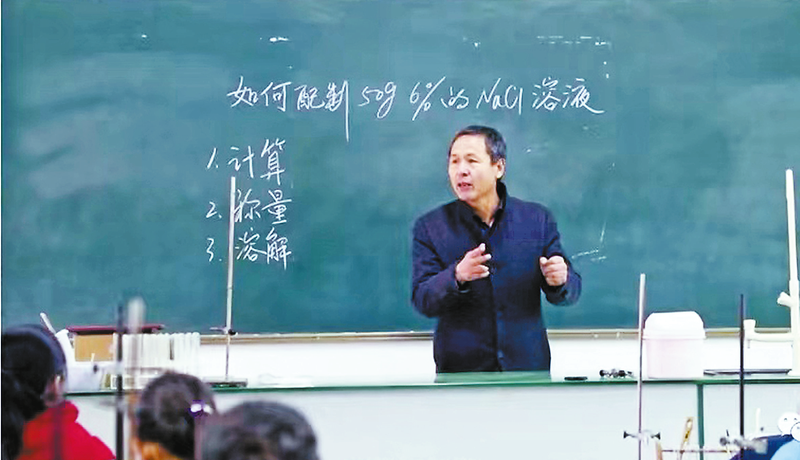 如何配制50g 6%的NaCl溶液
1. 计算
2. 称量
3. 溶解